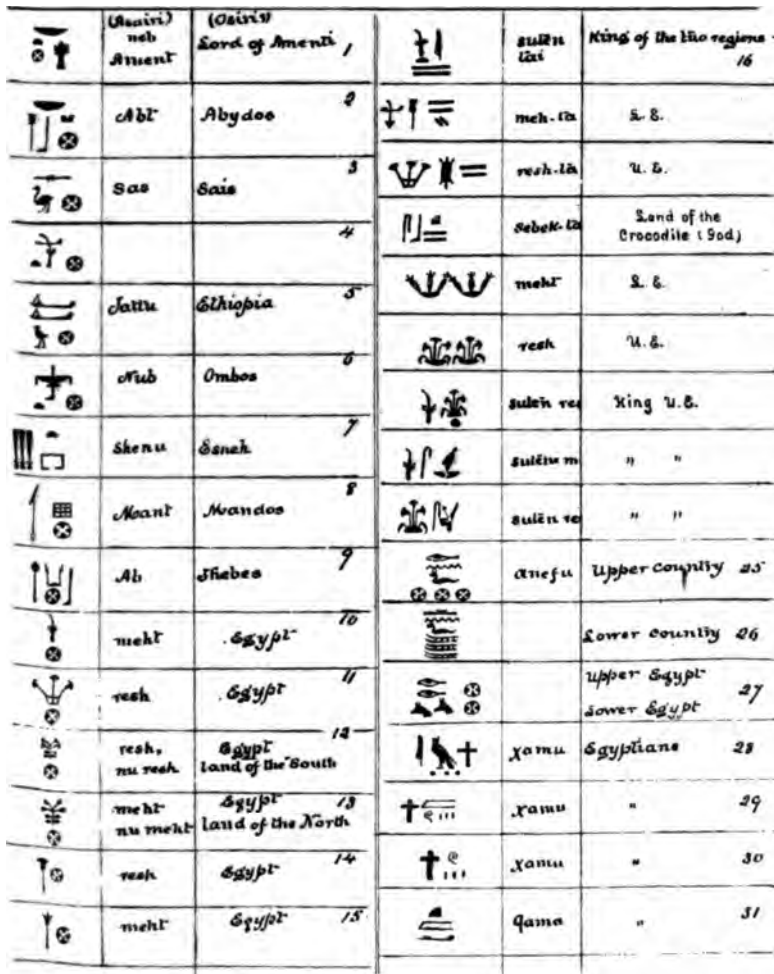 (Asairi) (Osiris)
neb Lord of Amenti 1
Ament
Abt Abydos 2
Sas Sais 3
4
Ethiopia 5
Nub Ombos 6
Shenu Esneh 7
8
Ab Thebes 9
meht Egypt 10
resh Egypt 11
resh, Egypt 12
nu resh Land of the South
meht Egypt 13
nu meht Land of the North
resh Egypt 14
meht Egypt 15
sutēn King of the two regions
tai 16
meh-ta L. E.
resh-ta U. E.
sebek-ta Land of the
Crocodile (God)
meht L. E.
resh U. E.
sutēn res King U. E.
sutēn m " "
sutēn re " "
anefu Upper country 25
Lower country 26
Upper Egypt 27
Lower Egypt
xamu Egyptians 28
xamu " 29
xamu " 30
qama " 31